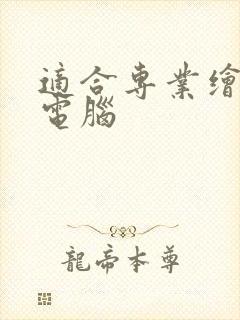 適合專業繪
電腦
龍帝本尊